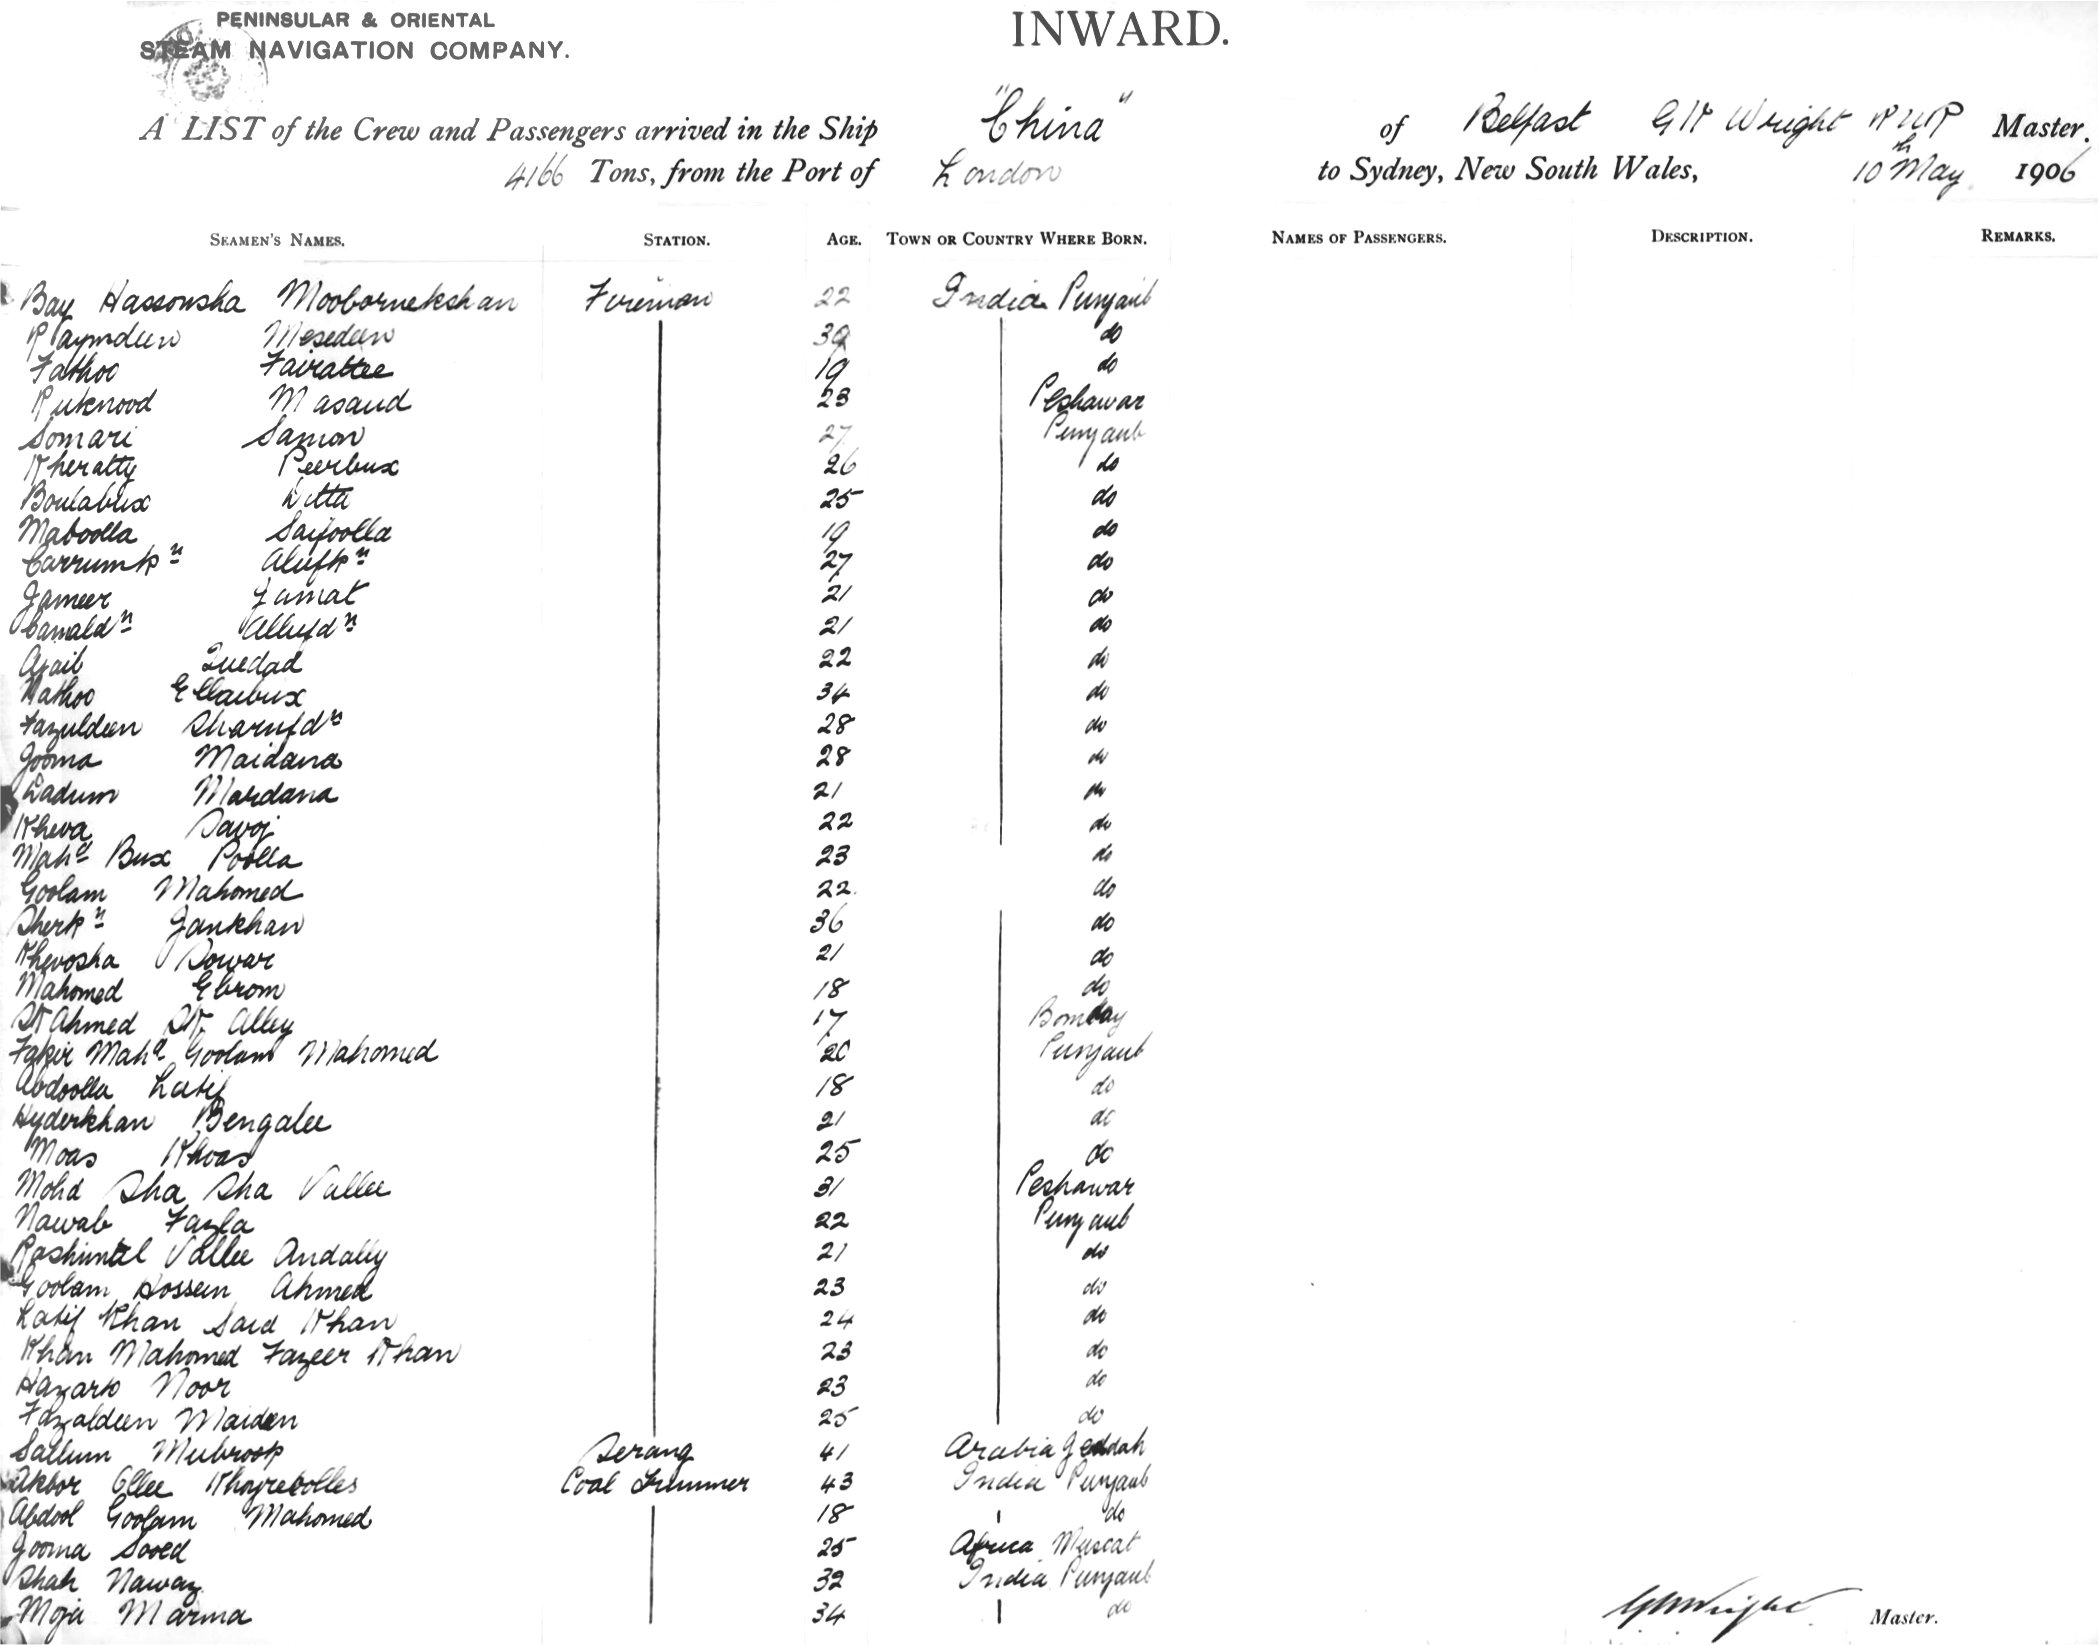 PENINSULAR & ORIENTAL
STEAM NAVIGATION COMPANY.
INWARD.
A LIST of the Crew and Passengers arrived in the Ship "China" of Belfast G W Wright RNR Master.
4166 Tons, from the Port of London to Sydney, New South Wales, 10th May 1906
SEAMEN'S NAMES. STATION. AGE. TOWN OR COUNTRY WHERE BORN. NAMES OF PASSENGERS. DESCRIPTION. REMARKS.
Bay Hassonsha Moobarnekshan Fireman 22 India Punjaub
Raymdeen Mesedeen 39 do
Fathoo Fairattee 19 do
Ruknood Masaud 23 Peshawar
Somari Samon 27 Punjaub
Kheratty Peerbux 26 do
Boulabux Ditta 25 do
Maboolla Saifoolla 19 do
Carrumkn Alufkn 27 do
Jameer Jamat 21 do
Camaldn Allufdn 21 do
Ajail 22 do
Nathoo Ellaibux 34 do
Fazuldeen Sharufdn 28 do
Jooma Maidana 28 do
Ladum Mardana 21 do
Kheva Savoj 22 do
Mahd Bux Poolla 23 do
Goolam Mahomed 22 do
Sherkn Jankhan 36 do
Khevosha Sowar 21 do
Mahomed Ebrom 18 do
SK Ahmed SK. Alley 17 Bombay
Fakir Mahd Goolam Mahomed 20 Punjaub
Abdoolla Latif 18 do
Hyderkhan Bengalee 21 do
Moas Khoas 25 do
Mohd Sha Sha Vallee 31 Peshawar
Nawab Fazla 22 Punjaub
Vallee Andally 21 do
Goolam Hossein Ahmed 23 do
Latif Khan Said Khan 24 do
Khan Mahomed Fazeer Khan 23 do
Hazaro Noor 23 do
Fazaldeen Maiden 25 do
Sallum Mubrook Serang 41 Arabia Jeddah
Akbor Ollee Coal Trimmer 43 India Punjaub
Abdool Goolam Mahomed 18 do
Jooma Sooed 25 Africa Muscat
Shah Nawaz 32 India Punjaub
Moja Marma 34 do
GWWright Master.